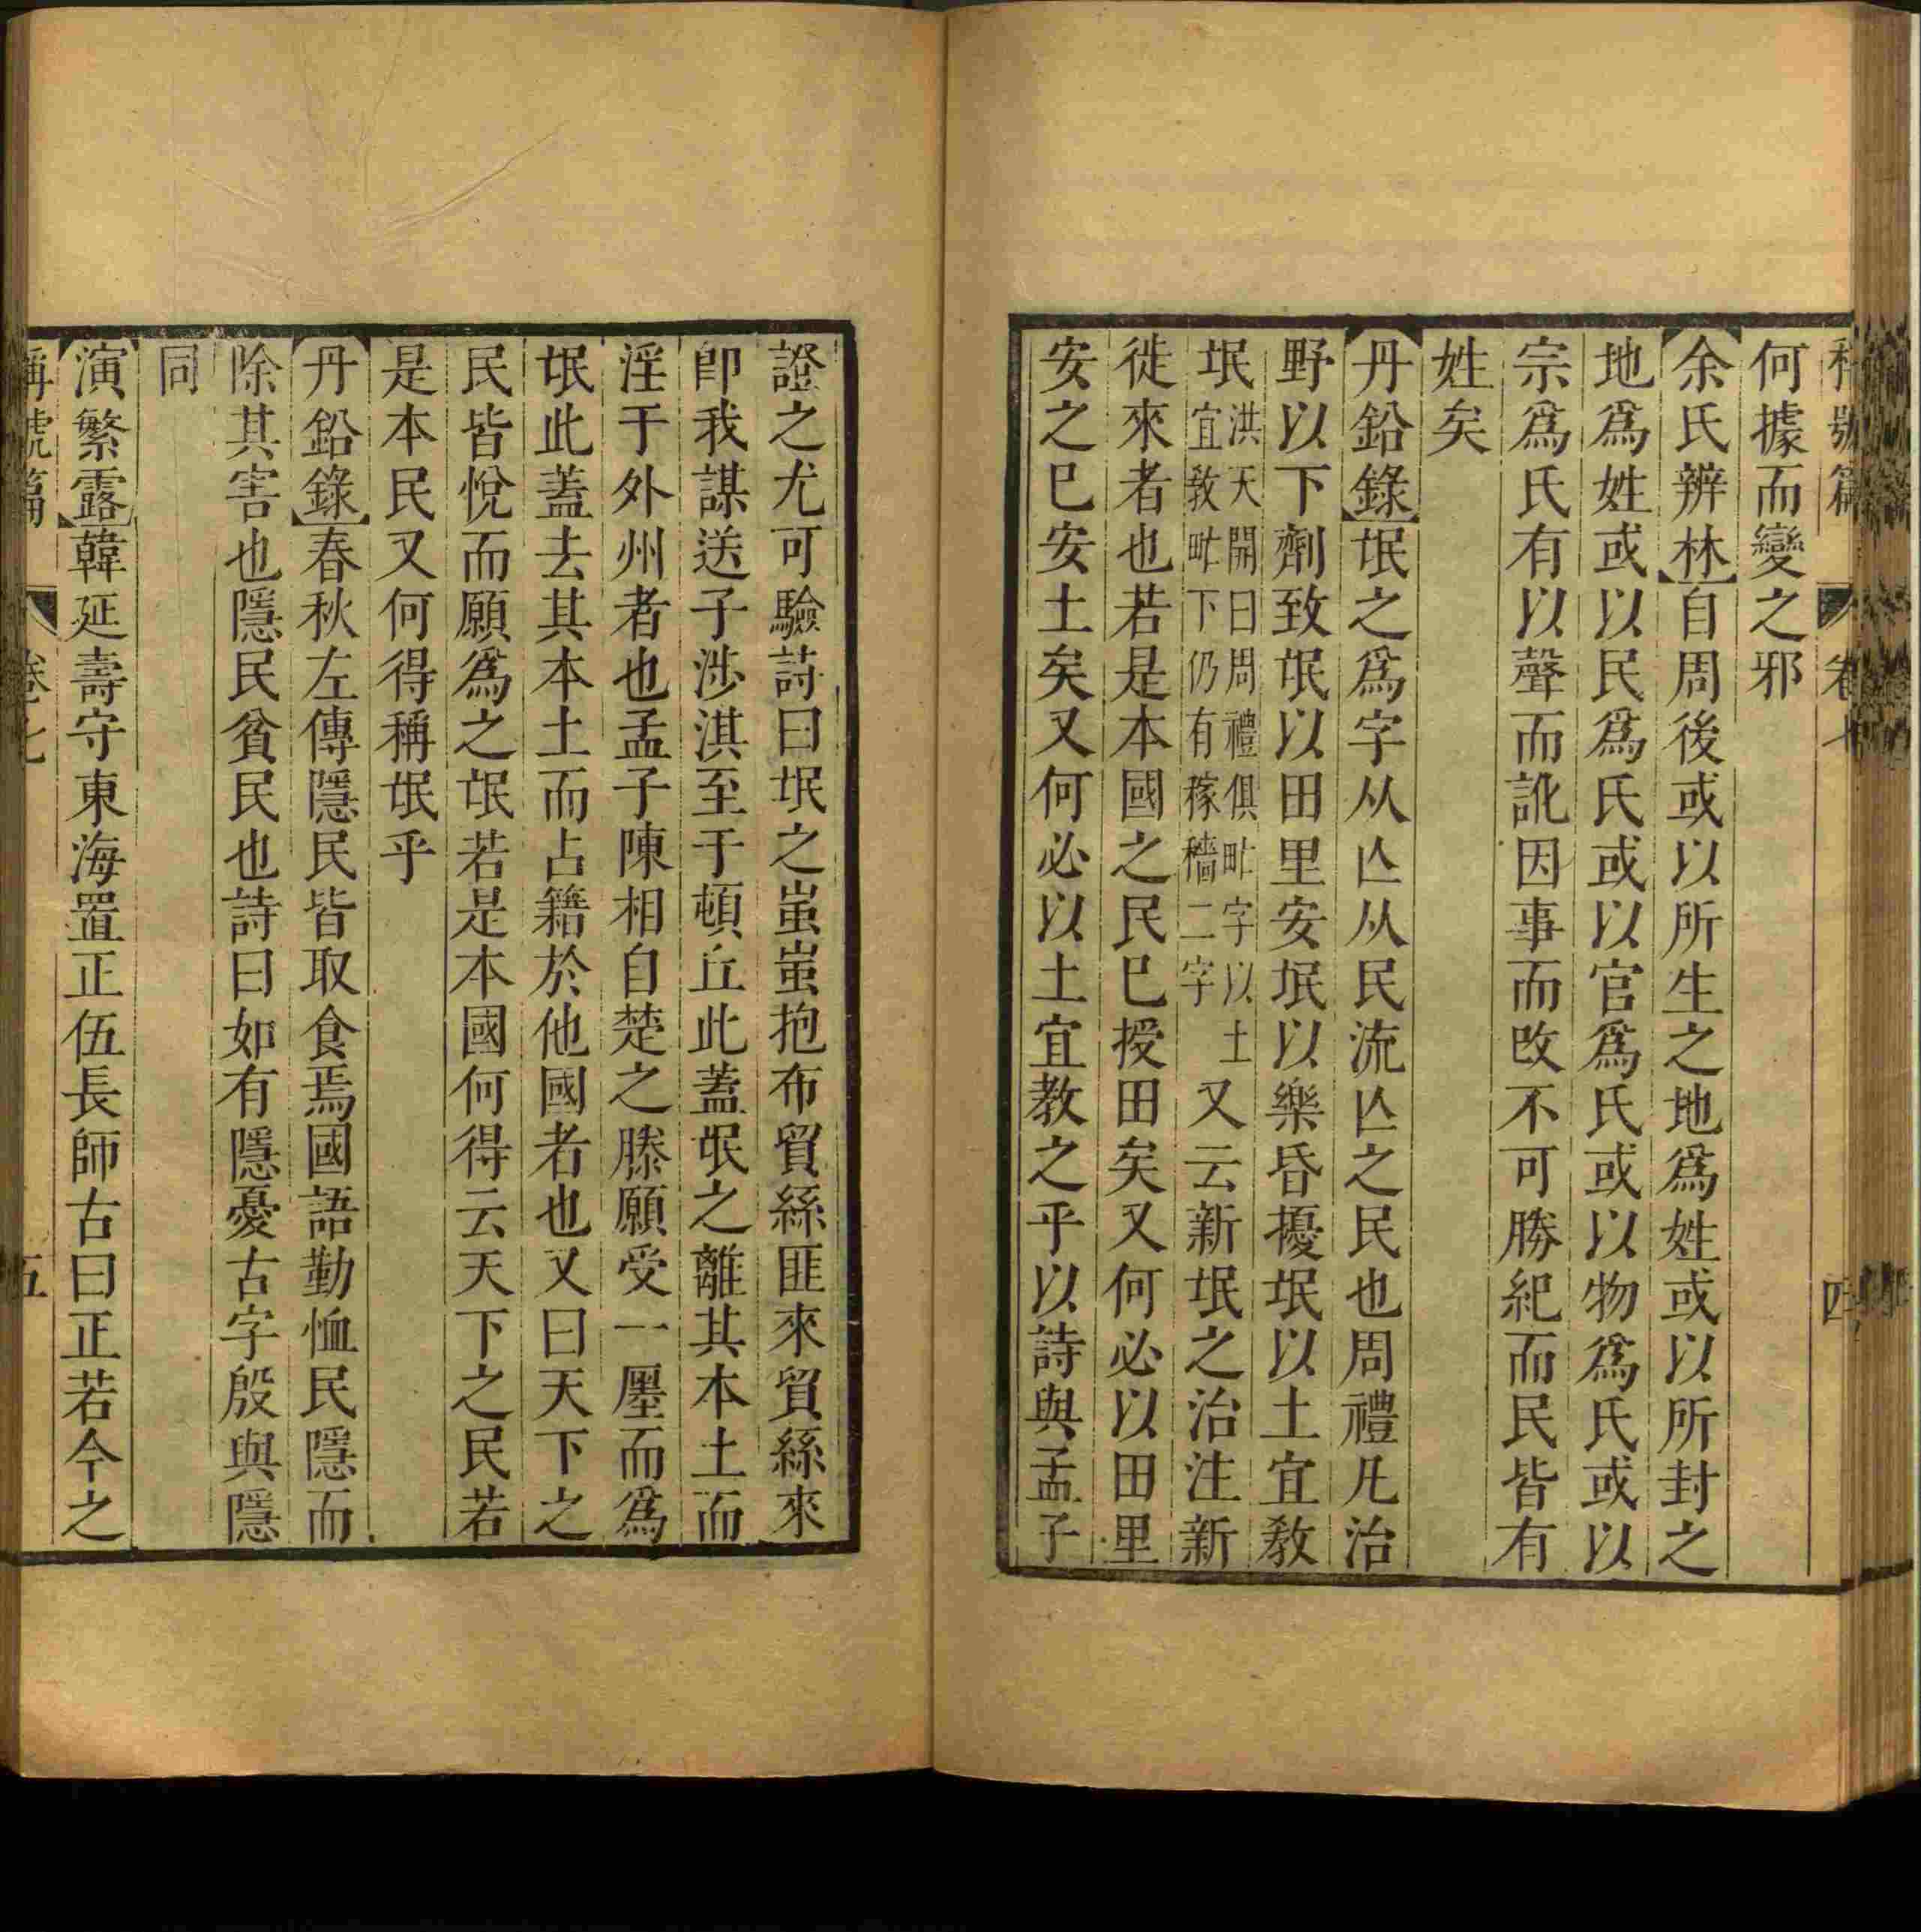 稱號篇 卷七 四
何據而變之邪
余氏辨林自周後或以所生之地爲姓或以所封之
地爲姓或以民爲氏或以官爲氏或以物爲氏或以
宗爲氏有以聲而訛因事而改不可勝紀而民皆有
姓矣
丹鉛錄氓之爲字从亾从民流亾之民也周禮凡治
野以下劑致氓以田里安氓以樂昏擾氓以土宜教
氓洪天開曰周禮俱甿字以土宜教甿下仍有稼穡二字又云新氓之治注新
徙來者也若是本國之民已授田矣又何必以田里
安之巳安土矣又何必以土宜教之乎以詩與孟子
證之尤可驗詩曰氓之蚩蚩抱布貿絲匪來貿絲來
卽我謀送子涉淇至于頓丘此蓋氓之離其本土而
淫于外州者也孟子陳相自楚之滕願受一廛而爲
氓此蓋去其本土而占籍於他國者也又曰天下之
民皆悅而願爲之氓若是本國何得云天下之民若
是本民又何得稱氓乎
丹鉛錄春秋左傳隱民皆取食焉國語勤恤民隱而
除其害也隱民貧民也詩曰如有隱憂古字殷與隱
同
演繁露韓延壽守東海置正伍長師古曰正若今之
稱號篇 卷七 五